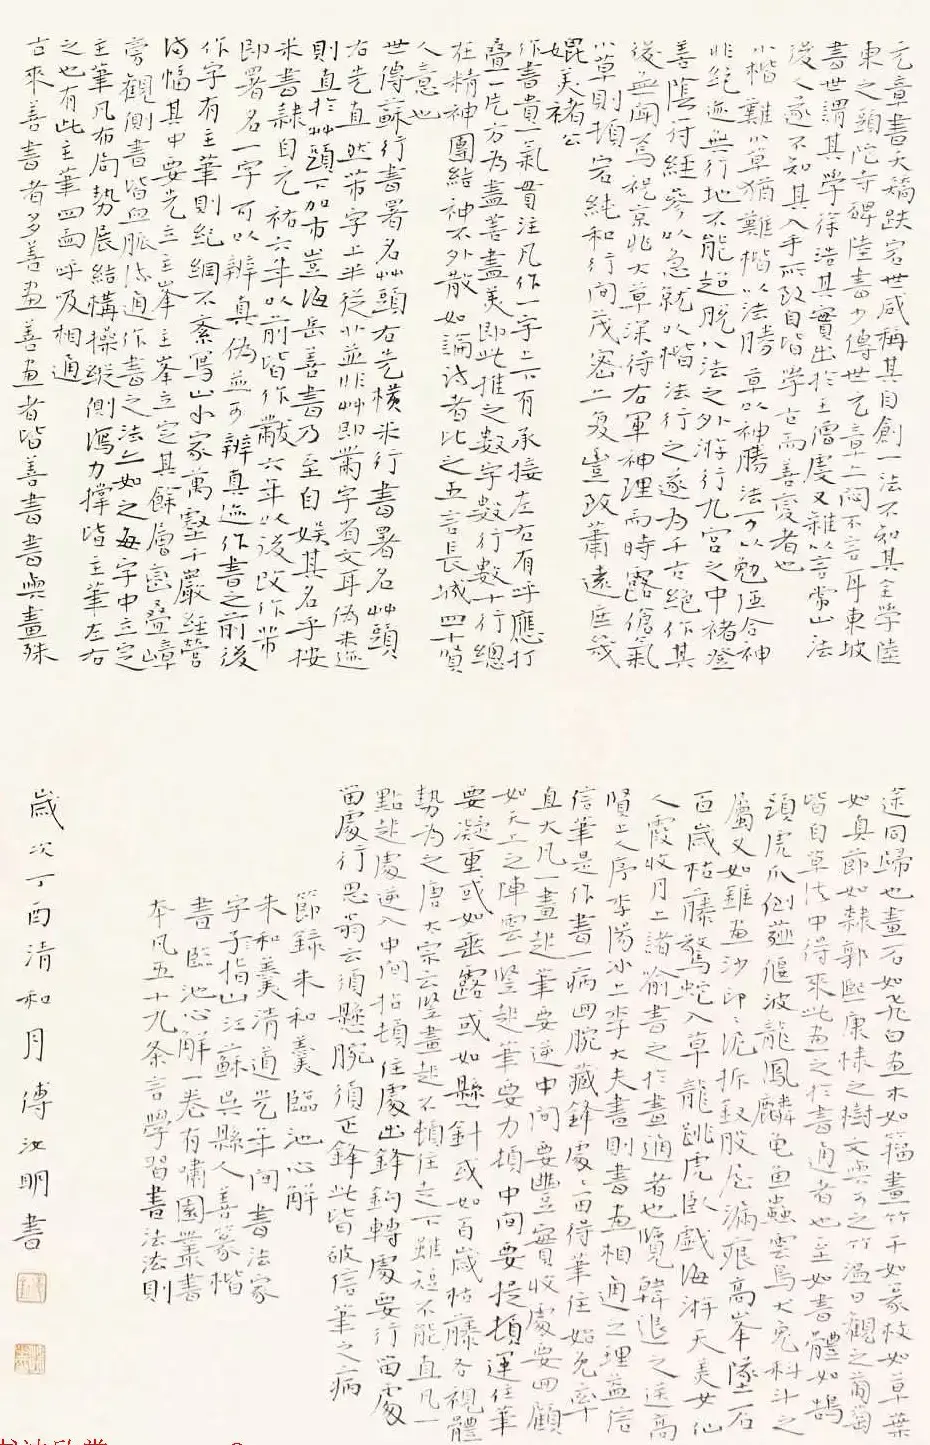 元章書夭矯跌宕世咸稱其自創一法不知其全學陸
東之頭陀寺碑陸書少傳世元章上悶不言耳東坡
書世謂其學徐浩其實出於王僧虔又雜以言常山法
後人遂不知其入手所改自皆學古而善變者也
小楷難小草猶難楷以法勝草以神勝法可以勉正合神
非絕迹無行地不能超脫八法之外游行九宮之中褚登
善陰符經參以急就以楷法行之遂為千古絕作其
後無聞焉祝京兆大草深得右軍神理而時露傖氣
小草則頓宕純和行間茂密亦復豐致蕭遠庶幾
媲美褚公
作書貴一氣貫注凡作一字上下有承接左右有呼應打
疊一片方為盡善盡美即此推之數字數行數十行總
在精神團結神不外散如論詩者比之五言長城四十賢
人意也
世得蘇行書署名艸頭右先橫米行書署名艸頭
右先直然芾字上半從米並非艸即黹字省文耳偽米迹
則直於艸頭下加市豈海岳善書乃至自娱其名乎按
米書隸自元祐六年以前皆作黻六年以後改作芾
即署名一字可以辨真偽並可辨真迹作書之前後
作字有主筆則紀綱不紊寫山水家萬壑千巖經營
滿幅其中要先立主峯主峯立定其餘層巒疊嶂
旁觀側書皆血脈流通作書之法亦如之每字中立定
主筆凡布局勢展結構操縱側瀉力撐皆主筆左右
之也有此主筆四面呼吸相通
古來善書者多善畫善畫者皆善書書與畫殊
途同歸也畫石如飛白畫木如籀畫竹干如篆枝如草葉
如真節如隸郭熙唐棣之樹文與可之竹溫日觀之葡萄
皆自草法中得來此畫之於書通者也至如書體如鵠
頭虎爪倒薤偃波龍鳳麟龟魚蟲雲鳥犬兔科斗之
屬又如錐画沙印印泥折釵股屋漏痕高峯墜石
百歲枯藤驚蛇入草龍跳虎臥戲海游天美女仙
人霞收月上諸喻書之於畫通者也覽韓退之送高
閑上人序李陽冰上李大夫書則書画相通之理益信
信筆是作書一病回腕藏鋒處處留得筆住始免率
直大凡一畫起筆要逆中間要豐實收處要回顧
如天上之陣雲一竖起筆要力頓中間要提頓運住筆
要凝重或如垂露或如懸針或如百歲枯藤各視體
勢為之唐大宗云竪畫起不頓住走下雖短不能直凡一
點起處逆入中間拈頓住處出鋒鈎轉處要行留處
留處行思翁云須懸腕須正鋒此皆破信筆之病
節錄朱和羹臨池心解
朱和羹清道光年間書法家
字子指山江蘇吳縣人善篆楷
書臨池心解一卷有嘯園叢書
本凡五十九条言學習書法法則
歲次丁酉清和月傅汝明書